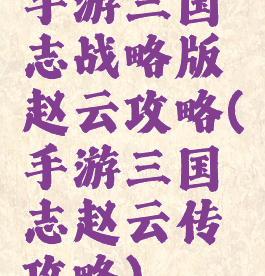 手游三国
志战略版
赵云攻略(
手游三国
志赵云传
攻略)